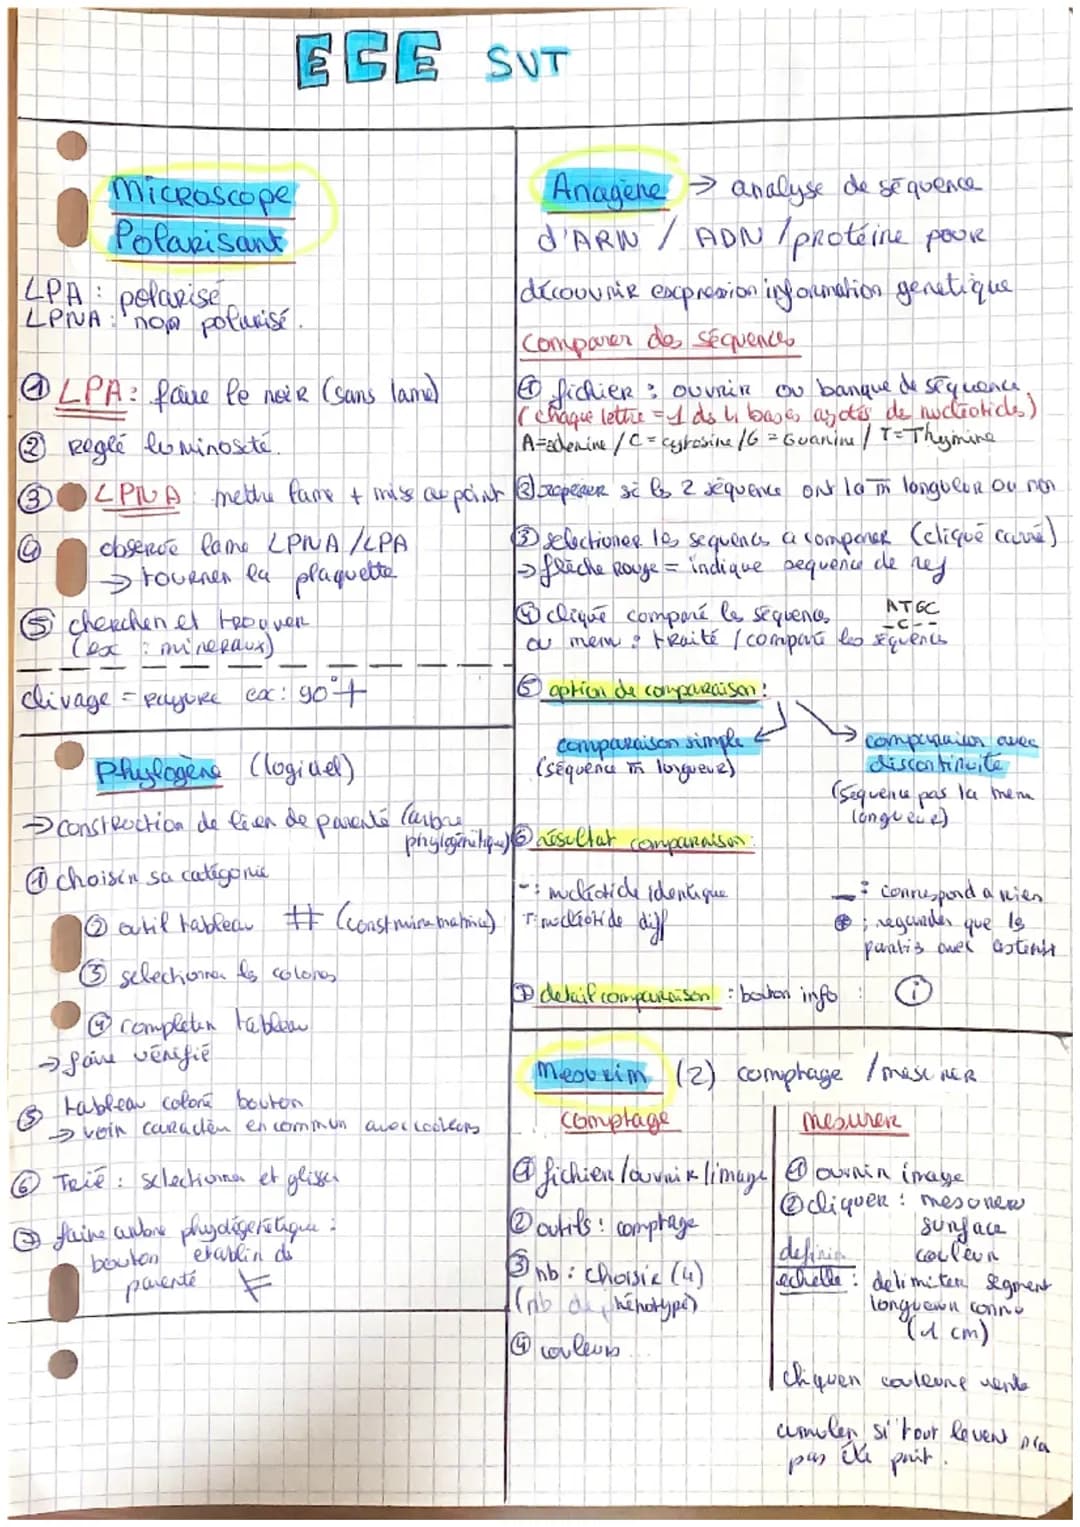 ECE SVT
Microscope
Polarisant
LPA : polarisé
LPNA : non polarisé.
① LPA : faire le noir (sans lame)
② Reglé luminosité.
③ LPNA mettre lame + miss au point
④ observé lame LPNA /LPA
→ tourner la plaquette
⑤ chercher et trouver
(ex : mineraux)
clivage = rayure ex : 90° +
Phylogène (logiciel)
→ construction de lien de parenté (arbre
phylogénétique)
① choisir sa catégorie
② outil tableau # (construire matrice)
③ selectionner les colones
④ completer tableau
→ faire vérifié
⑤ tableau coloré bouton
→ voir caractèr en commun avec couleurs
⑥ Trié : selectionner et glisser
⑦ faire arbre phylogénétique :
bouton etablir de
parenté
Anagène → analyse de séquence
d'ARN / ADN / protéine pour
découvrir expression information genetique
Comparer des séquences
① fichier : ouvrir ou banque de séquence
(chaque lettre = 1 ds 4 bases azotés de nucléotides)
A=adenine / C = cytosine / G = Guanine / T = Thymine
② repérer si les 2 séquence ont la m̄ longueur ou non
③ selectioner les sequences a comparer (cliqué carré)
→ flèche rouge = indique sequence de ref
④ cliqué comparé les séquences ATGC
ou menu : traité / comparé les séquences -C--
⑤ option de comparaison :
comparaison simple
(séquence m̄ longueur)
comparaison avec
discontinuité
(sequence pas la mem
longueur)
⑥ résultat comparaison :
- : nucléotide identique
T : nucléotide diff
_ : correspond a rien
* : regarder que les
partis avec asterisk
⑦ detail comparaison : bouton info : ⓘ
Mesurim (2) comptage / mesurer
comptage
① fichier /ouvrir /image
② outils : comptage
③ nb : choisir (4)
(nb de phénotype)
④ couleurs ...
mesurer
① ouvrir image
② cliquer : mesurer
surface
couleur
definir
echelle : délimiter segment
longueur connu
(1 cm)
cliquer couleur verte
cumuler si tout le vert n'a
pas été prit.